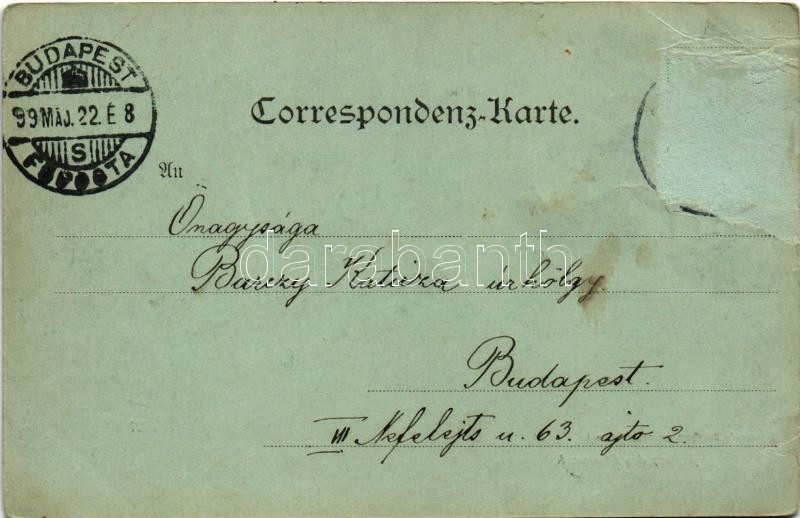 BUDAPEST
99 MÁJ. 22. É 8
S
FŐPOSTA
Correspondenz-Karte.
An
Őnagysága
darabanth
Barczy Katicza úrhölgy.
Budapest.
VII Nefelejts u. 63. ajtó 2.